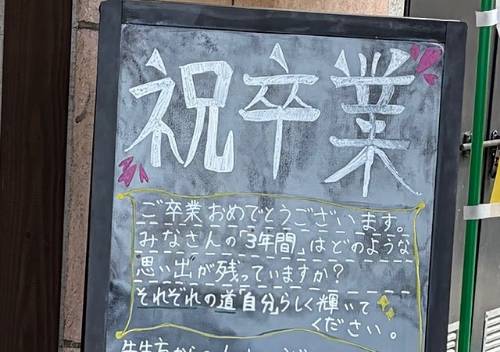 祝卒業
ご卒業おめでとうございます。
みなさんの「3年間」はどのような
思い出が残っていますか？
それぞれの道自分らしく輝いて
ください。